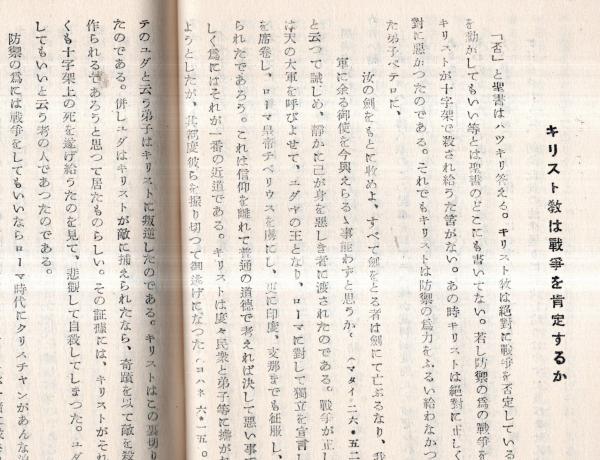 キリスト教は戰爭を肯定するか
「否」と聖書はハツキリ答える。キリスト敎は絕對に戰爭を否定している
を動かしてもいい等とは聖書のどこにも書いてない。若し防禦の爲の戰爭を
キリストが十字架で殺され給うた筈がない。あの時キリストは絕對に正しく
對に惡かつたのである。それでもキリストは防禦の爲力をふるい給わなかつ
た弟子ペテロに、
汝の劍をもとに收めよ、すべて劍をとる者は劍にて亡ぶるなり、我
軍に余る御使を今與えらるゝ事能わずと思うか。(マタイ二六・五二
と云つて誡しめ、靜かに己が身を惡しき者に渡されたのである。戰爭が正し
は天の大軍を呼びよせて、ユダヤの王となり、ローマに對して獨立を宣言し
を席卷し、ローマ皇帝チベリウスを虜にし、更に印度、支那までも征服し、
られたであろう。これは信仰を離れて普通の道德で考えれば決して惡い事で
しく爲にはそれが一番の近道である。キリストは度々民衆と弟子等に擔がれ
ようとしたが、其都度彼らを振り切つて御逃げになつた(ヨハネ 六・一五)。
テのユダと云う弟子はキリストに叛逆したのである。キリストはこの裏切り
たのである。併しユダはキリストが敵に捕えられたなら、奇蹟を以て敵を殺
作られるであろうと思つて居たものらしい。その証據には、キリストがそれ
くも十字架上の死を遂げ給うたのを見て、悲觀して自殺してしまつた。ユダ
してもいいと云う考の人であつたのである。
防禦の爲には戰爭をしてもいいならローマ時代にクリスチヤンがあんな